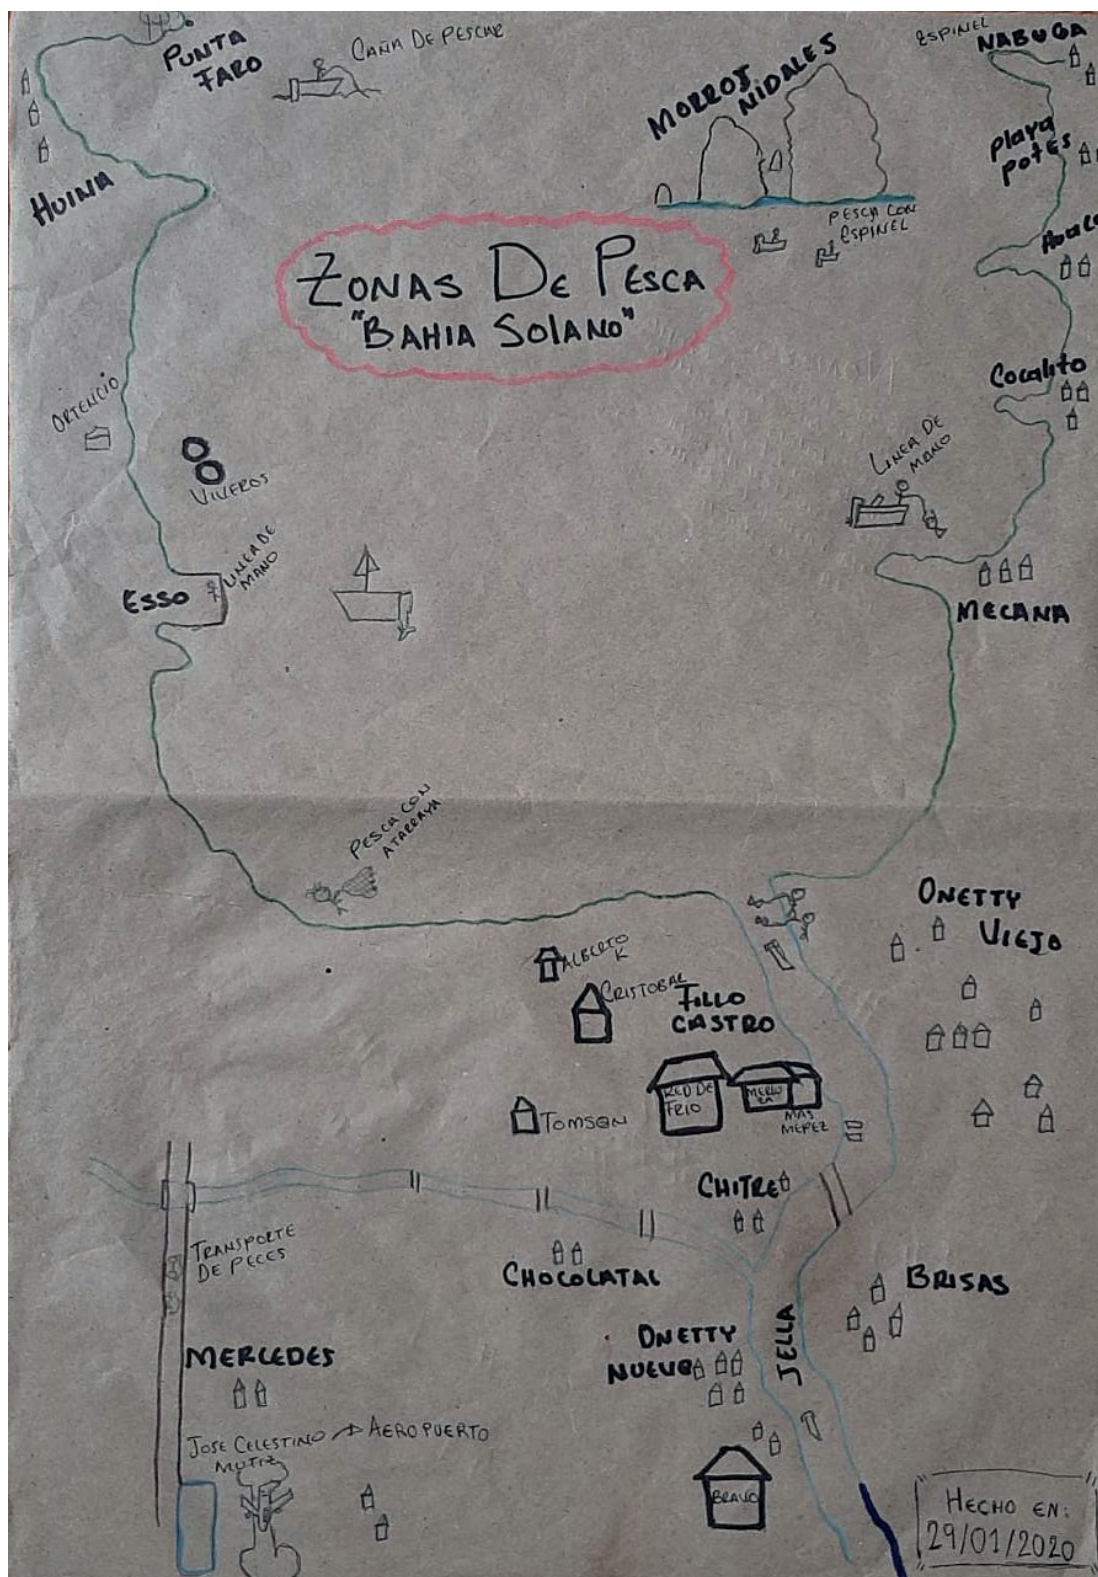 PUNTA
FARO
CAÑA DE PESCAR
ESPINEL
NABUGA
MORROS
NIDALES
Playa
Potes
HUINA
PESCA CON
ESPINEL
ZONAS DE PESCA
"BAHIA SOLANO"
Cocalito
ORTENCIO
VIVEROS
LINEA DE
MANO
LINEA DE
MANO
ESSO
MECANA
PESCA CON
ATARRAYA
ONETTY
VIEJO
ALBERTO
K
CRISTOBAL
FILLO
CASTRO
RED DE
FRIO
MERLU
ZA
MAS
MEPEZ
TOMSON
CHITRE
TRANSPORTE
DE PECES
CHOCOLATAL
BRISAS
JELLA
ONETTY
NUEVO
MERCEDES
JOSE CELESTINO → AEROPUERTO
MUTIZ
BRAVO
HECHO EN:
29/01/2020